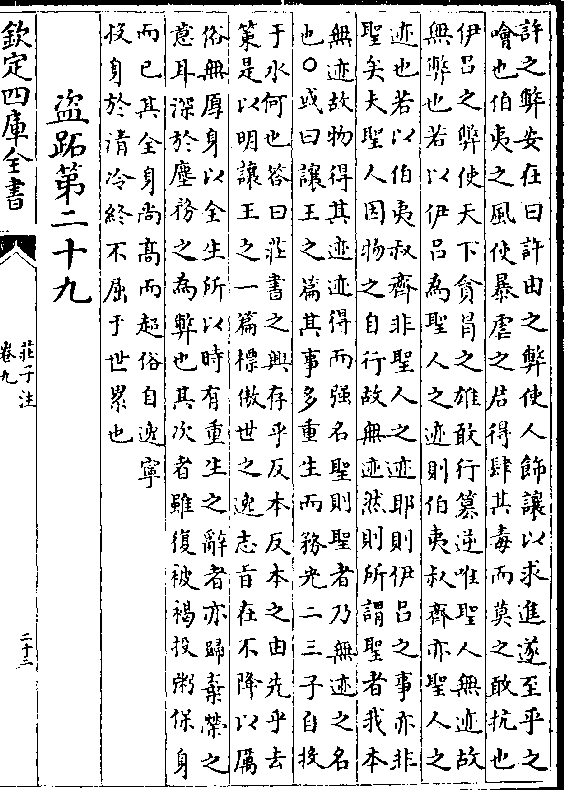 許之弊安在曰許由之弊使人飾讓以求進遂至乎之
噲也伯夷之風使暴虐之君得肆其毒而莫之敢抗也
伊呂之弊使天下貪冒之雄敢行篡逆唯聖人無迹故
無弊也若以伊呂為聖人之迹則伯夷叔齊亦聖人之
迹也若以伯夷叔齊非聖人之迹耶則伊呂之事亦非
聖矣夫聖人因物之自行故無迹然則所謂聖者我本
無迹故物得其迹迹得而强名聖則聖者乃無迹之名
也○或曰讓王之篇其事多重生而務光二三子自投
于水何也答曰莊書之興存乎反本反本之由先乎去
榮是以明讓王之一篇標傲世之逸志旨在不降以厲
俗無厚身以全生所以時有重生之辭者亦歸棄榮之
意耳深於塵務之為弊也其次者雖復被褐投粥保身
而已其全身尚高而超俗自逸寧
投身於清冷終不屈于世累也
盜跖第二十九
欽定四庫全書
莊子注
卷九
二十三